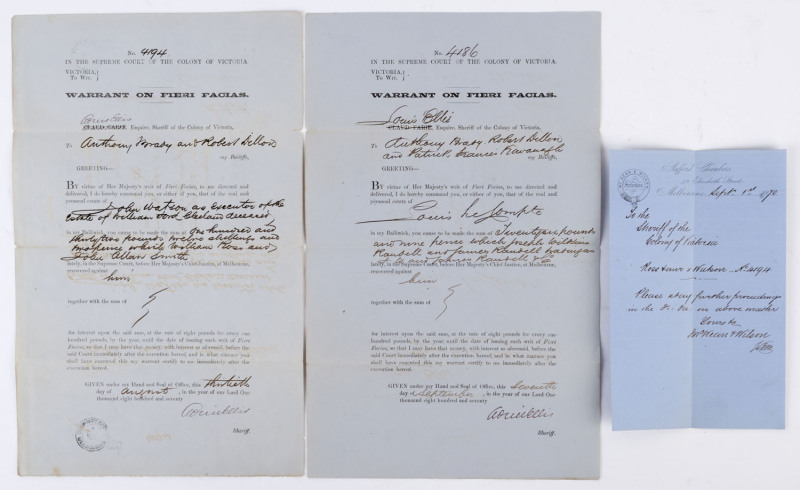 No. 4194
IN THE SUPREME COURT OF THE COLONY OF VICTORIA.
VICTORIA, }
To Wit. }
WARRANT ON FIERI FACIAS.
Louis Ellis
CLAUD FARIE, Esquire, Sheriff of the Colony of Victoria,
To Anthony Brady and Robert Dillon
my Bailiffs,
GREETING—
BY virtue of Her Majesty's writ of Fieri Facias, to me directed and
delivered, I do hereby command you, or either of you, that of the real and
personal estate of
John Watson as Executor of the
Estate of William Ford Cleeland deceased
in my Bailiwick, you cause to be made the sum of One hundred and
thirty two pounds twelve shillings and
ninepence which William Ross and
John Allan Smith
lately, in the Supreme Court, before Her Majesty's Chief Justice, at Melbourne,
recovered against
him
together with the sum of
for interest upon the said sum, at the rate of eight pounds for every one
hundred pounds, by the year, until the date of issuing such writ of Fieri
Facias, so that I may have that money, with interest as aforesaid, before the
said Court immediately after the execution hereof; and in what manner you
shall have executed this my warrant certify to me immediately after the
execution hereof.
GIVEN under my Hand and Seal of Office, this thirtieth
day of August, in the year of our Lord One
thousand eight hundred and seventy
Louis Ellis
Sheriff.
No. 4186
IN THE SUPREME COURT OF THE COLONY OF VICTORIA.
VICTORIA, }
To Wit. }
WARRANT ON FIERI FACIAS.
Louis Ellis
CLAUD FARIE, Esquire, Sheriff of the Colony of Victoria,
To Anthony Brady Robert Dillon
and Patrick Francis Kavanagh
my Bailiffs,
GREETING—
BY virtue of Her Majesty's writ of Fieri Facias, to me directed and
delivered, I do hereby command you, or either of you, that of the real and
personal estate of
Louis Le Compte
in my Bailiwick, you cause to be made the sum of Seventy eight pounds
and nine pence which Joseph Wilkins
Randell and James Randell trading as
James Randell & Co
lately, in the Supreme Court, before Her Majesty's Chief Justice, at Melbourne,
recovered against
him
together with the sum of
for interest upon the said sum, at the rate of eight pounds for every one
hundred pounds, by the year, until the date of issuing such writ of Fieri
Facias, so that I may have that money, with interest as aforesaid, before the
said Court immediately after the execution hereof; and in what manner you
shall have executed this my warrant certify to me immediately after the
execution hereof.
GIVEN under my Hand and Seal of Office, this Seventh
day of September, in the year of our Lord One
thousand eight hundred and seventy
Louis Ellis
Sheriff.
Chambers
Elizabeth Street
Melbourne, Sept 1st 1870
To the
Sheriff of the
Colony of Victoria
Ross & anr v Watson No. 4194
Please stay further proceedings
in the Fi. Fa. in above matter
Yours &c
& Wilson